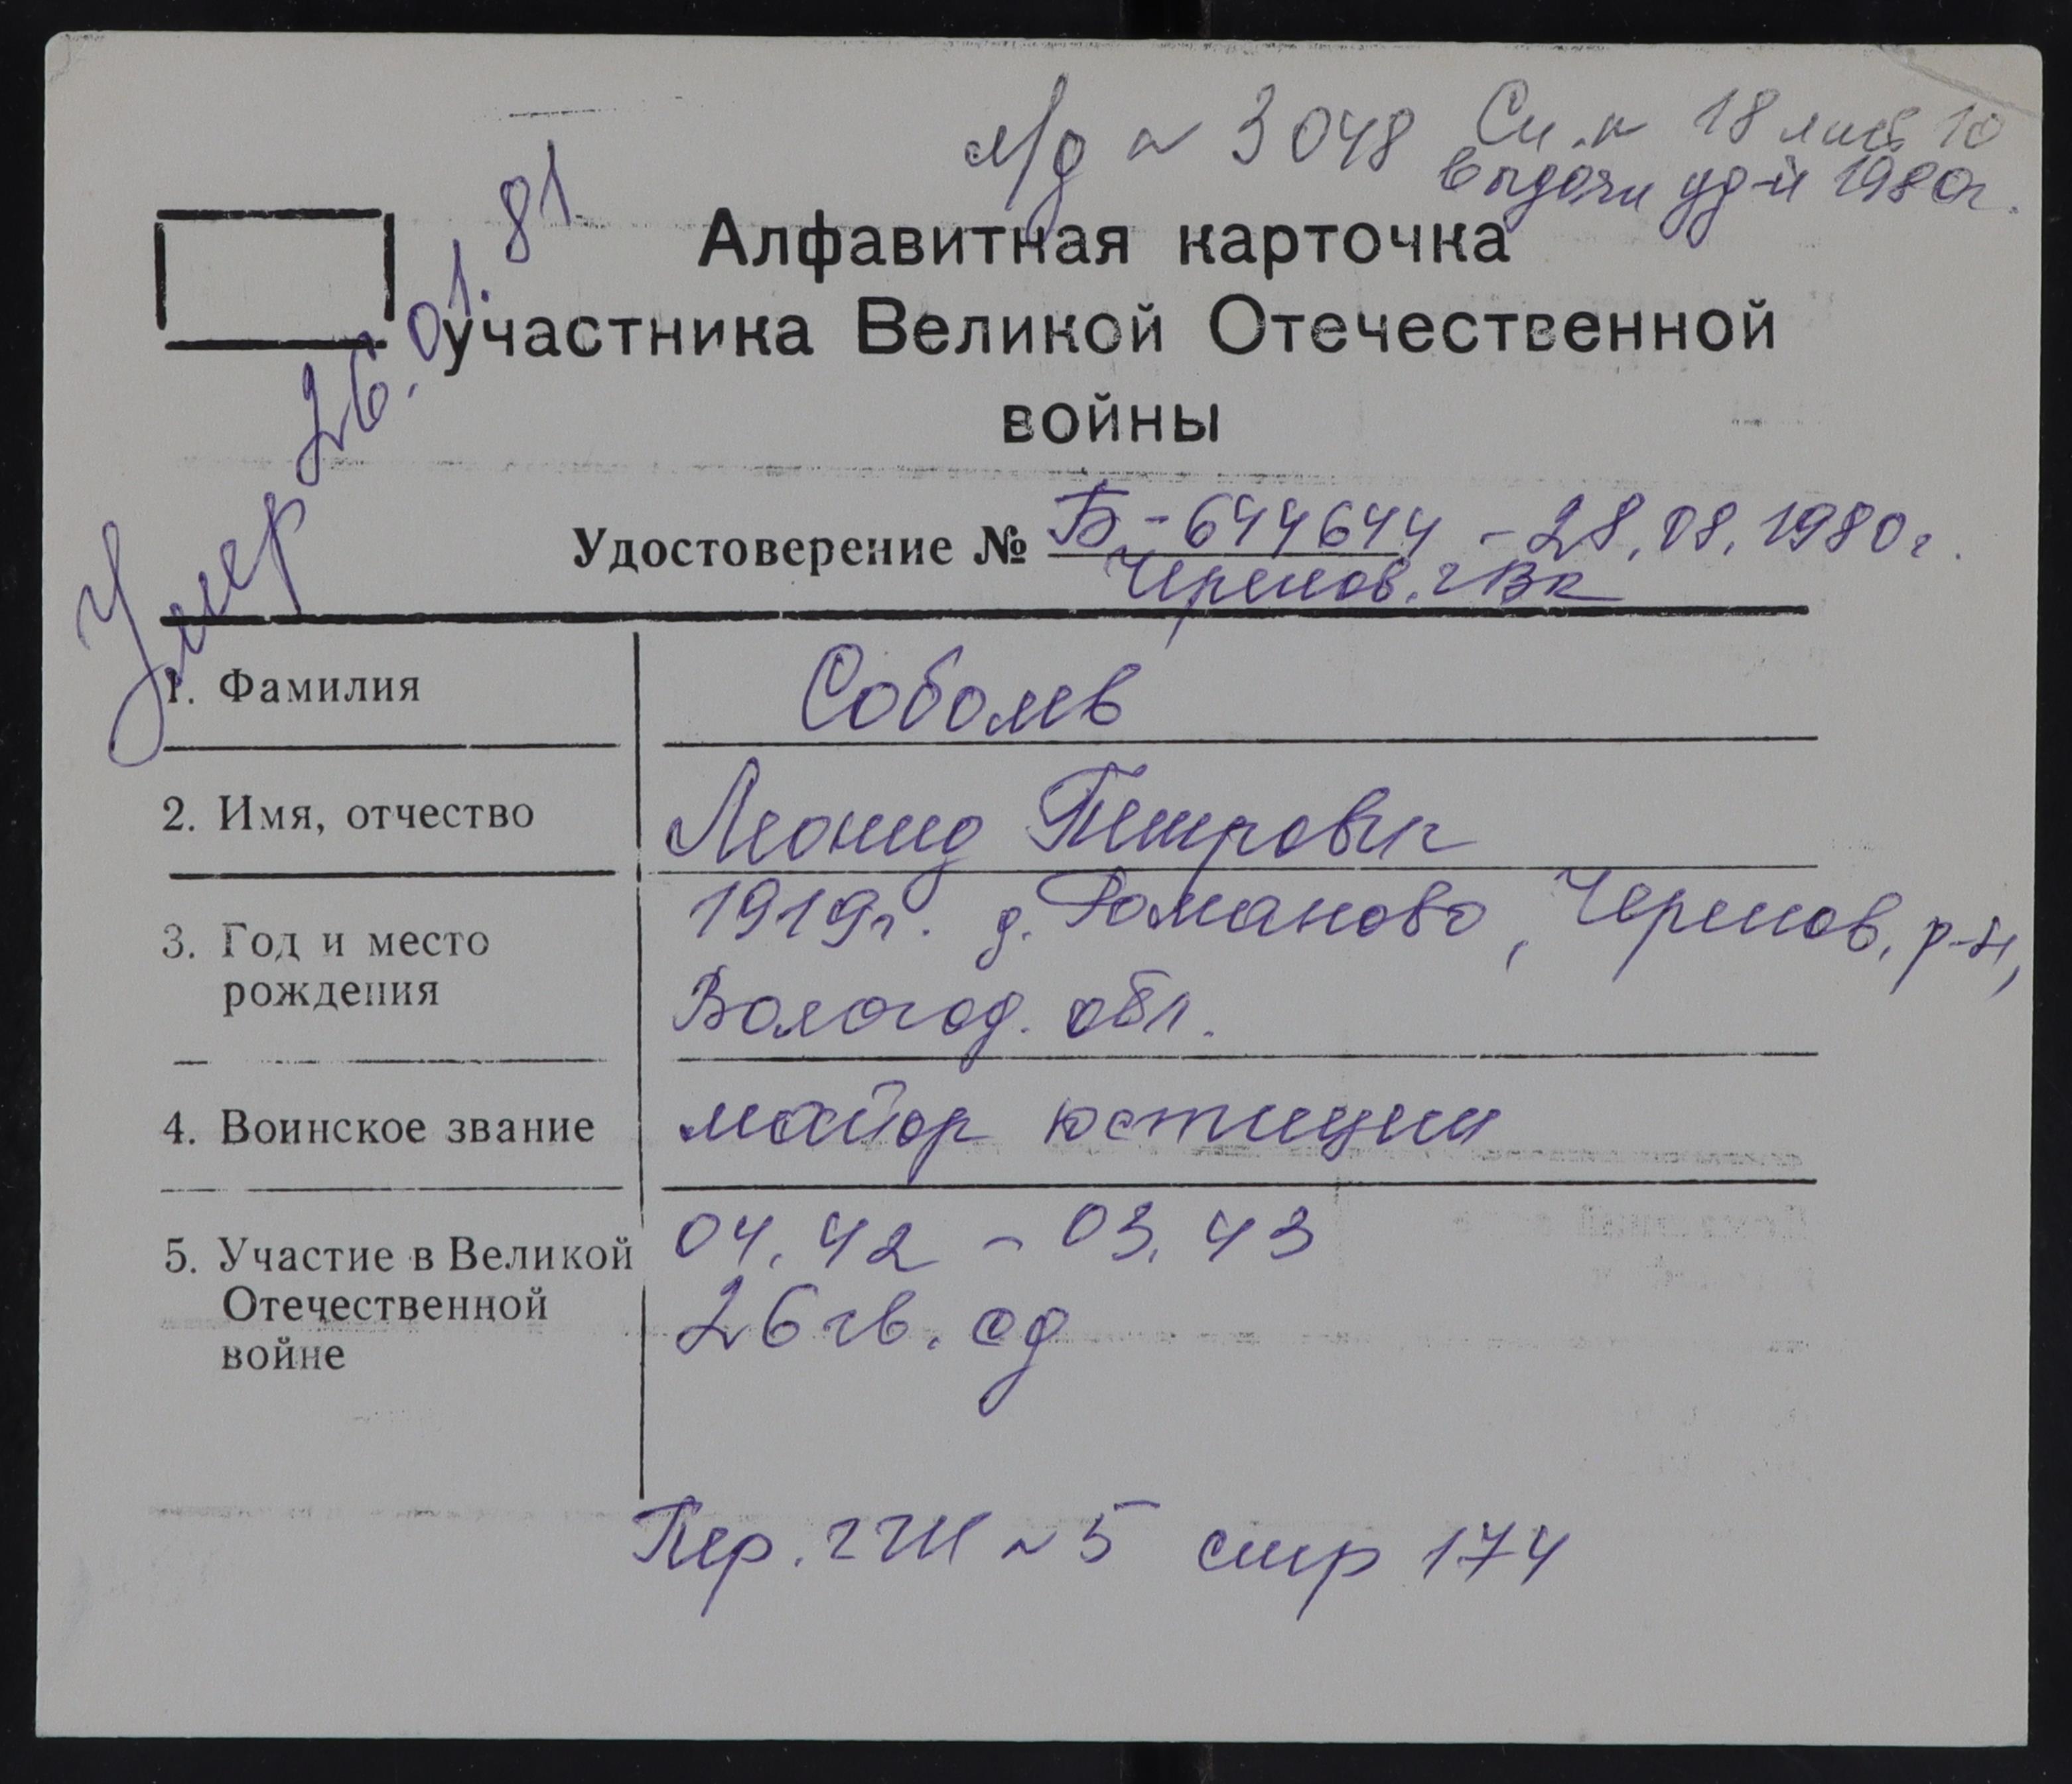 л/д № 3048 Сп. № 18 лист 10
выдачи уд-й 1980г.
Умер 26.01.81
Алфавитная карточка
участника Великой Отечественной
войны
Удостоверение № Б-644644 - 28.08.1980г.
Черепов. гвк
1. Фамилия Соболев
2. Имя, отчество Леонид Петрович
3. Год и место 1919г. д. Романово, Черепов. р-н,
рождения Вологод. обл.
4. Воинское звание майор юстиции
5. Участие в Великой 04.42 - 03.43
Отечественной 26 гв. сд
войне
Пер. № 5 стр 174